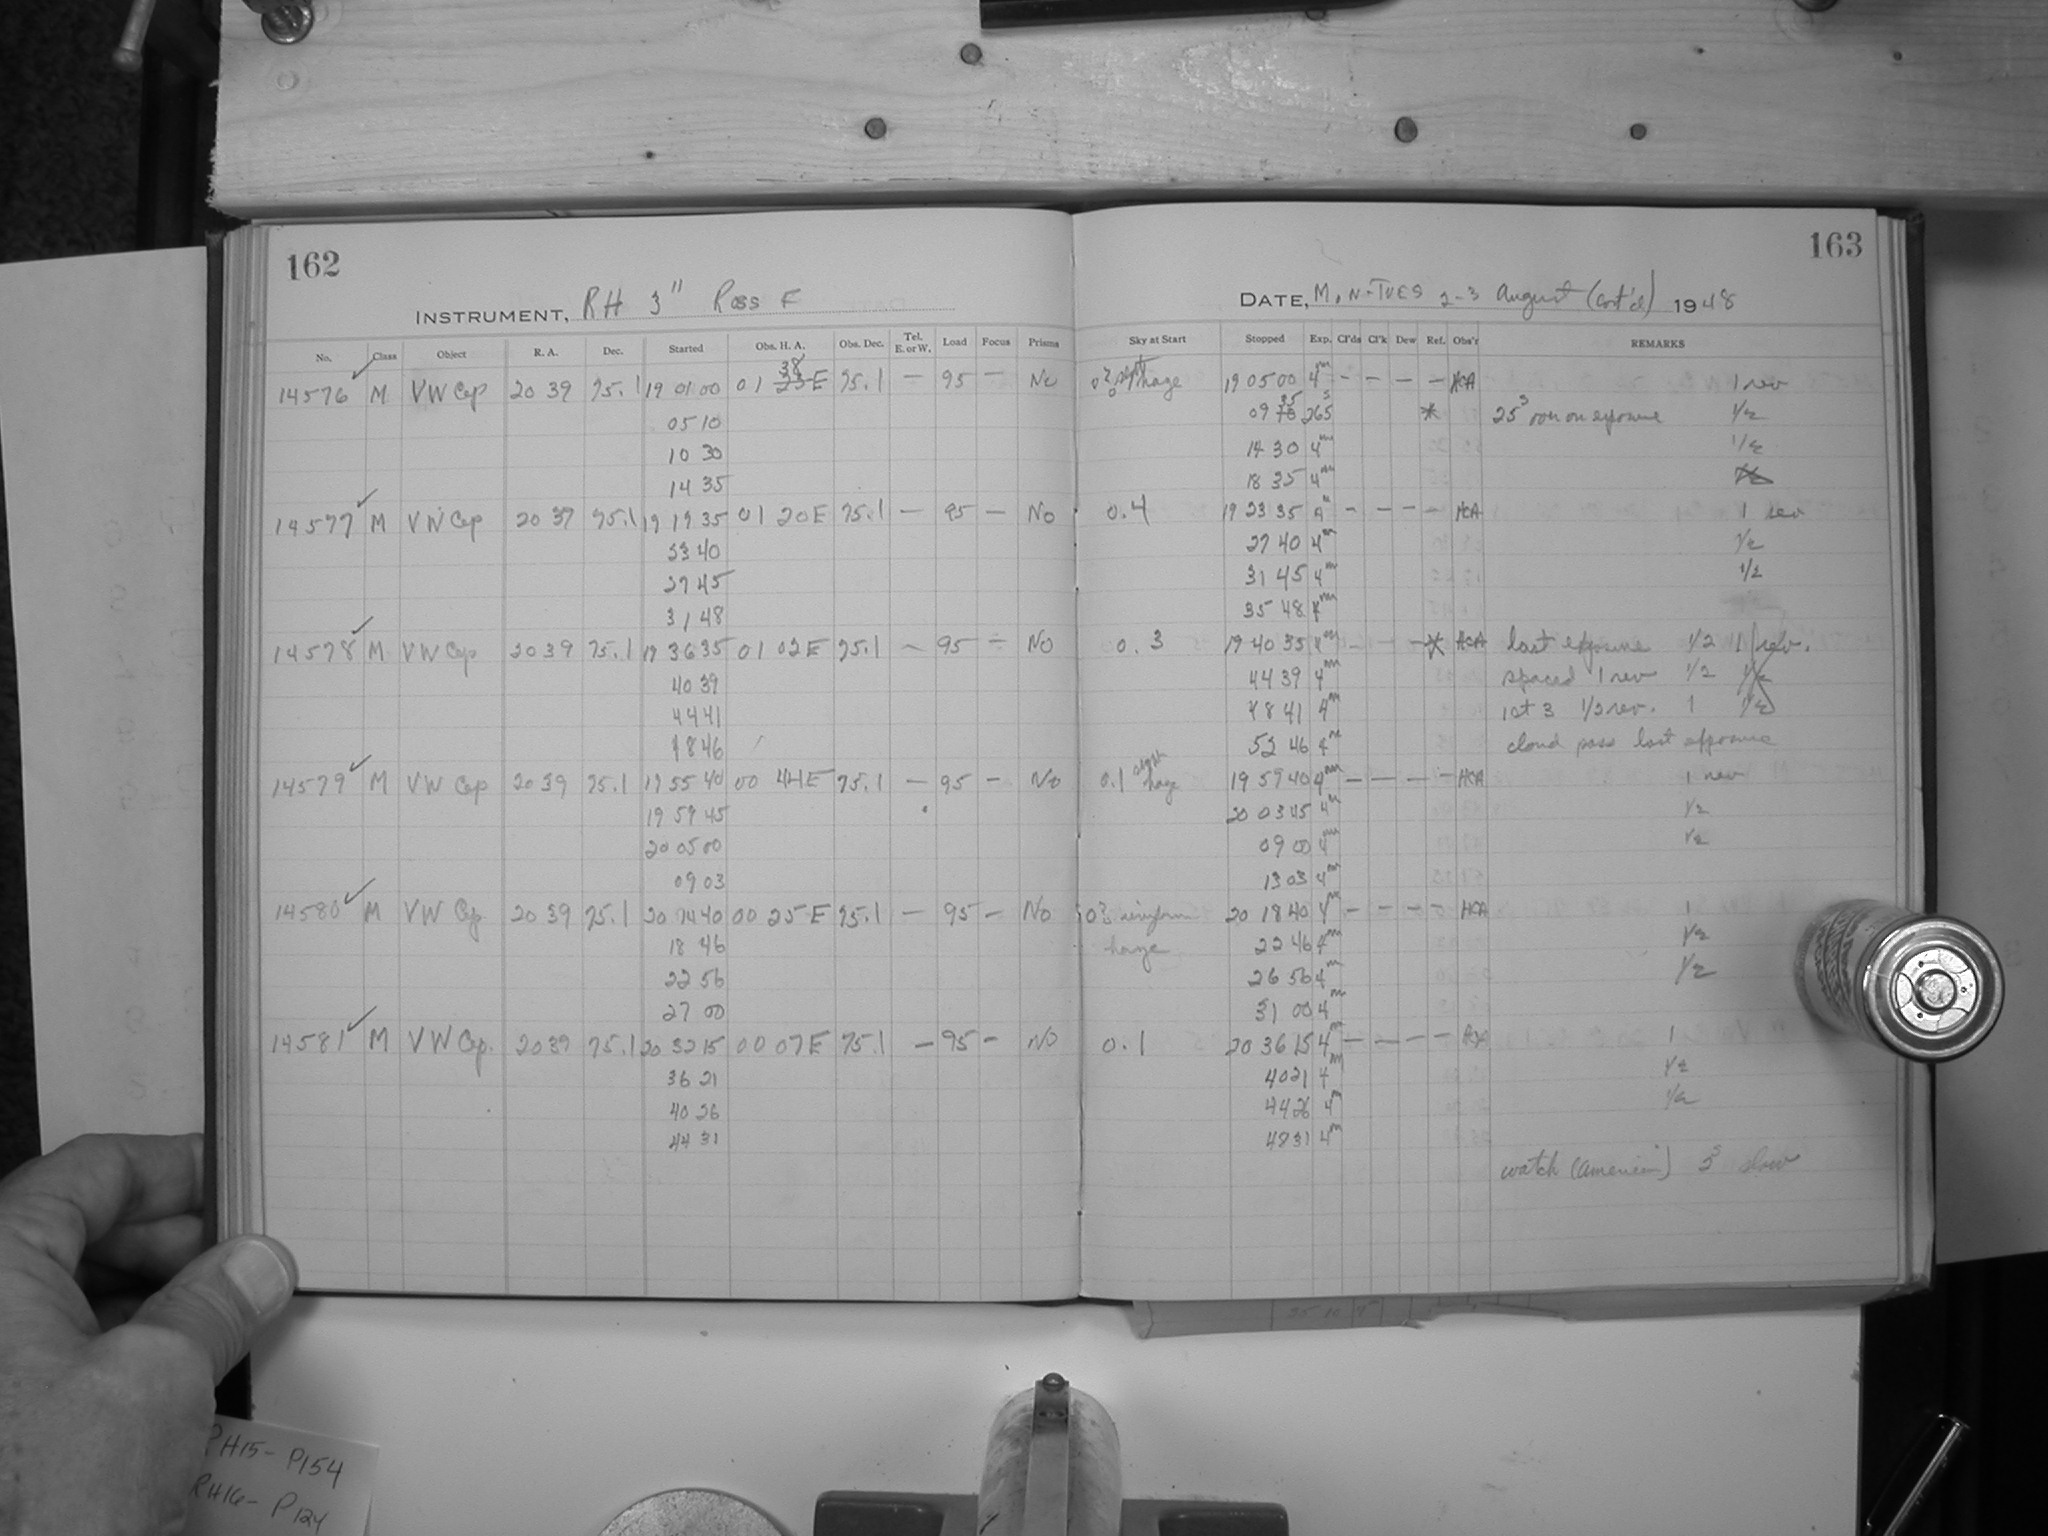 162 163
INSTRUMENT, RH 3" Ross F DATE, MON-TUES 2-3 August (cont'd) 1948
No. Class Object R. A. Dec. Started Obs. H. A. Obs. Dec. Tel. E. or W. Load Focus Prisms Sky at Start Stopped Exp. Cl'ds Cl'k Dew Ref. Obs'r REMARKS
38
14576 M VW Cep 20 39 75.1 19 01 00 01 23 E 75.1 — 95 — No haze 19 05 00 4m - - - - HCA 1 rev
05 10 09 35 265s * 25s over on exposure 1/2
10 30 14 30 4m 1/2
14 35 18 35 4m 1/2
14577 M VW Cep 20 39 75.1 19 19 35 01 20 E 75.1 — 95 — No 0.4 19 23 35 4m - - - - HCA 1 rev
23 40 27 40 4m 1/2
27 45 31 45 4m 1/2
31 48 35 48 4m
14578 M VW Cep 20 39 75.1 19 36 35 01 02 E 75.1 — 95 — No 0.3 19 40 35 4m - - - - * HCA last exposure 1/2 1 rev.
40 39 44 39 4m spaced 1 rev 1/2 1/2
44 41 48 41 4m 1st 3 1/2 rev. 1 1/2
48 46 52 46 4m cloud pass last exposure
14579 M VW Cep 20 39 75.1 19 55 40 00 44 E 75.1 — 95 — No 0.1 slight haze 19 59 40 4m - - - - HCA 1 rev
19 59 45 20 03 45 4m 1/2
20 05 00 09 00 4m 1/2
09 03 13 03 4m
14580 M VW Cep 20 39 75.1 20 14 40 00 25 E 75.1 — 95 — No 20 18 40 4m - - - - HCA 1
18 46 haze 22 46 4m 1/2
22 56 26 56 4m 1/2
27 00 31 00 4m
14581 M VW Cep. 20 39 75.1 20 32 15 00 07 E 75.1 — 95 — No 0.1 20 36 15 4m - - - - HCA 1
36 21 40 21 4m 1/2
40 26 44 26 4m 1/2
44 31 48 31 4m
watch (American) slow
RH15- P154
RH16- P124